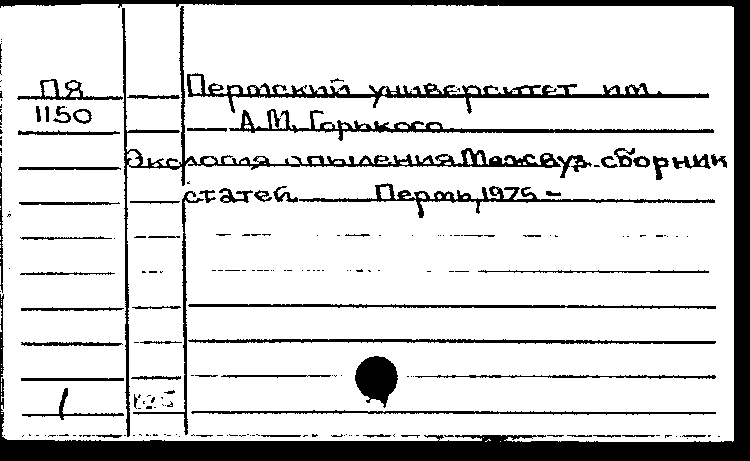 ПЯ Пермский университет им.
1150 А.М. Горького
Экология опыления. Межвуз. сборник
статей Пермь, 1975 –
1